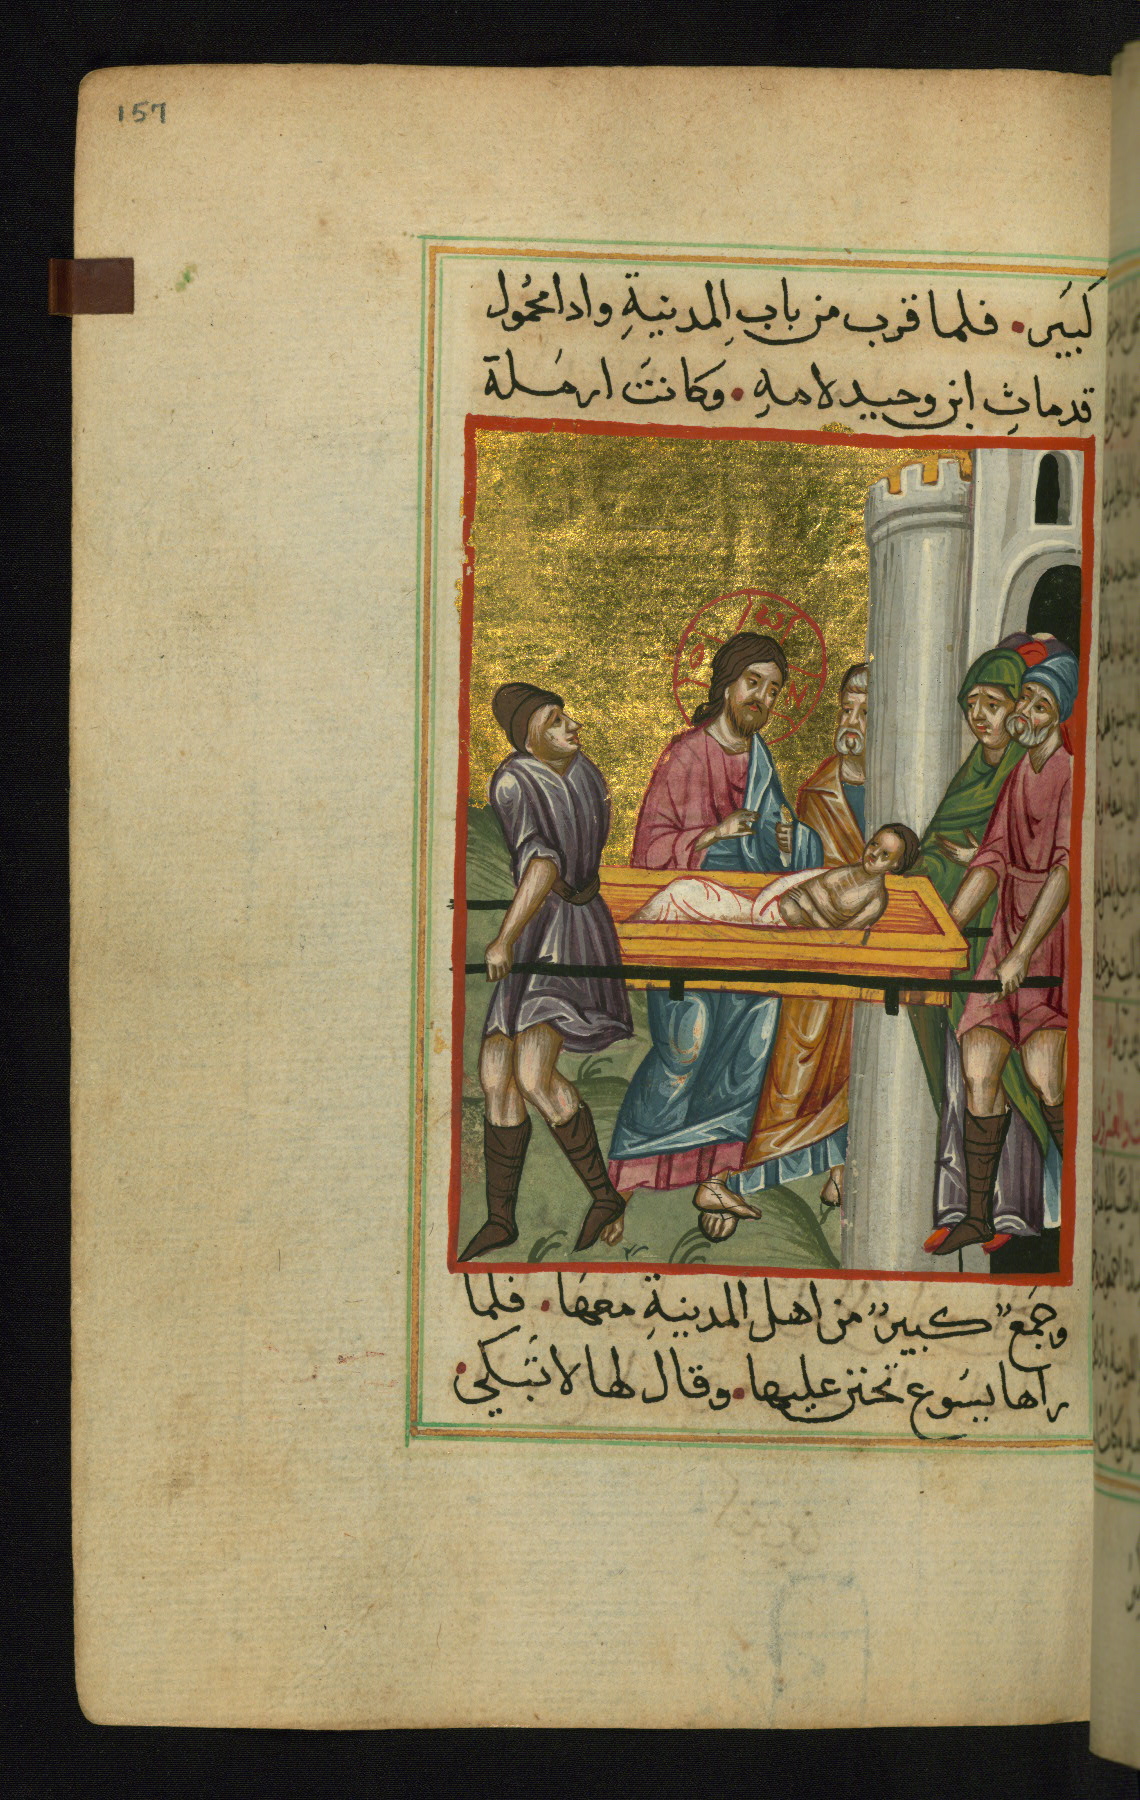 157
كَبيَر • فلما قرب من باب المدنية واذا محمُول
قد ماتِ ابن وحيد لامهِ • وكانتَ ارمَلة
Ο ω Ν
وجَمَع كبير من اهل المدينةِ معهَا • فلما
راها يسَوع تحنن عليها • وقال لها لا تبَكي •